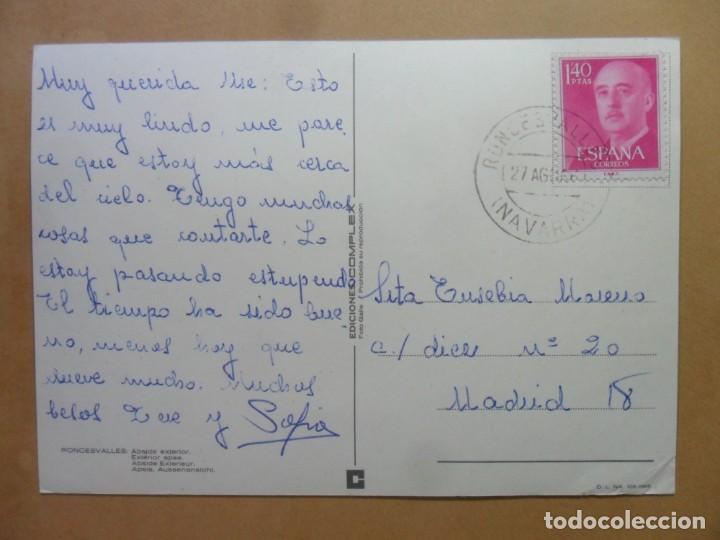 Muy querida Use: Esto
es muy lindo, me pare,
ce que estoy más cerca
del cielo. Tengo muchas
cosas que contarte. Lo
estoy pasando estupendo
El tiempo ha sido bue-
no, menos hoy que
llueve mucho. Muchos
besos y Sofia
RONCESVALLES: Abside exterior.
Extérior apse.
Abside Exterieur.
Apsis, Aussenansicht.
EDICIONES COMPLEX
Prohibida su reproducción
1'40
PTAS
ESPAÑA
CORREOS
RONCESVALLES
27 AGO
(NAVARRA)
Srta Eusebia Moreno
c./ diez nº 20
Madrid 18
D. L. NA.
todocoleccion
todocoleccion.net